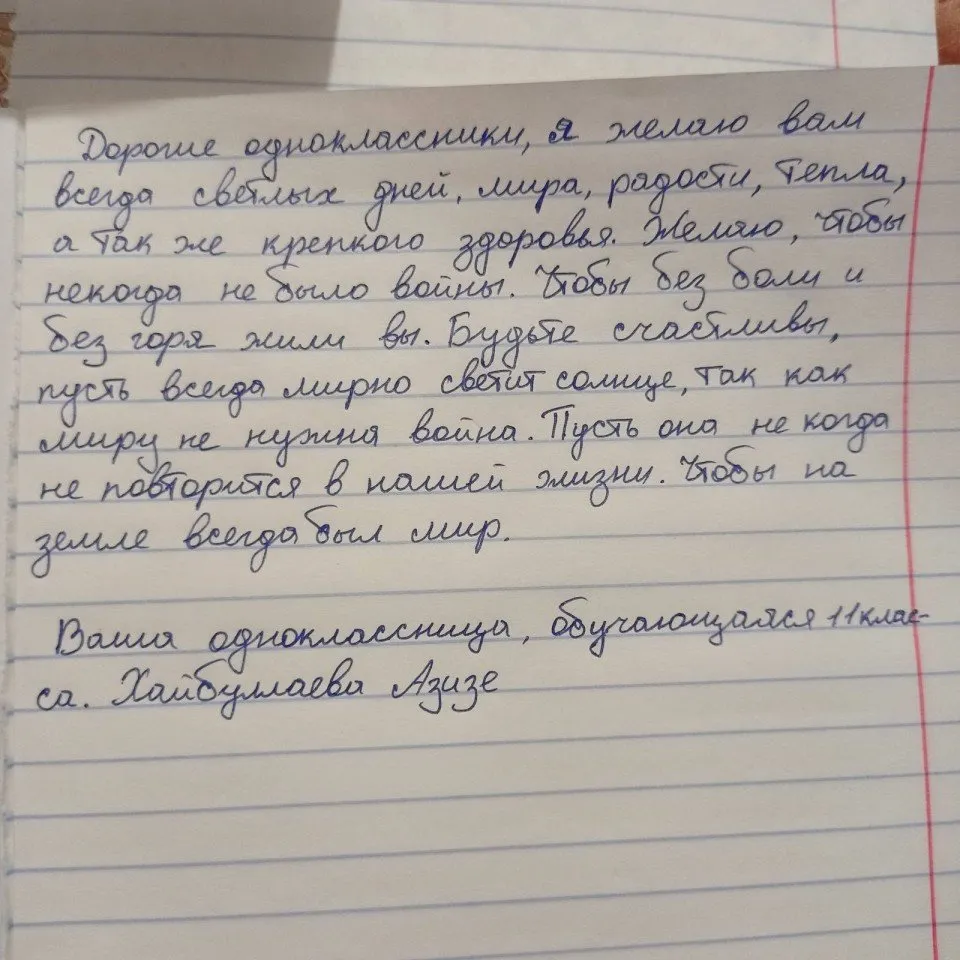 Дорогие одноклассники, я желаю вам
всегда светлых дней, мира, радости, тепла,
а так же крепкого здоровья. Желаю, чтобы
некогда не было войны. Чтобы без боли и
без горя жили вы. Будьте счастливы,
пусть всегда мирно светит солнце, так как
миру не нужна война. Пусть она не когда
не повторится в нашей жизни. Чтобы на
земле всегда был мир.
Ваша одноклассница, обучающаяся 11 клас-
са. Хайбуллаева Азизе